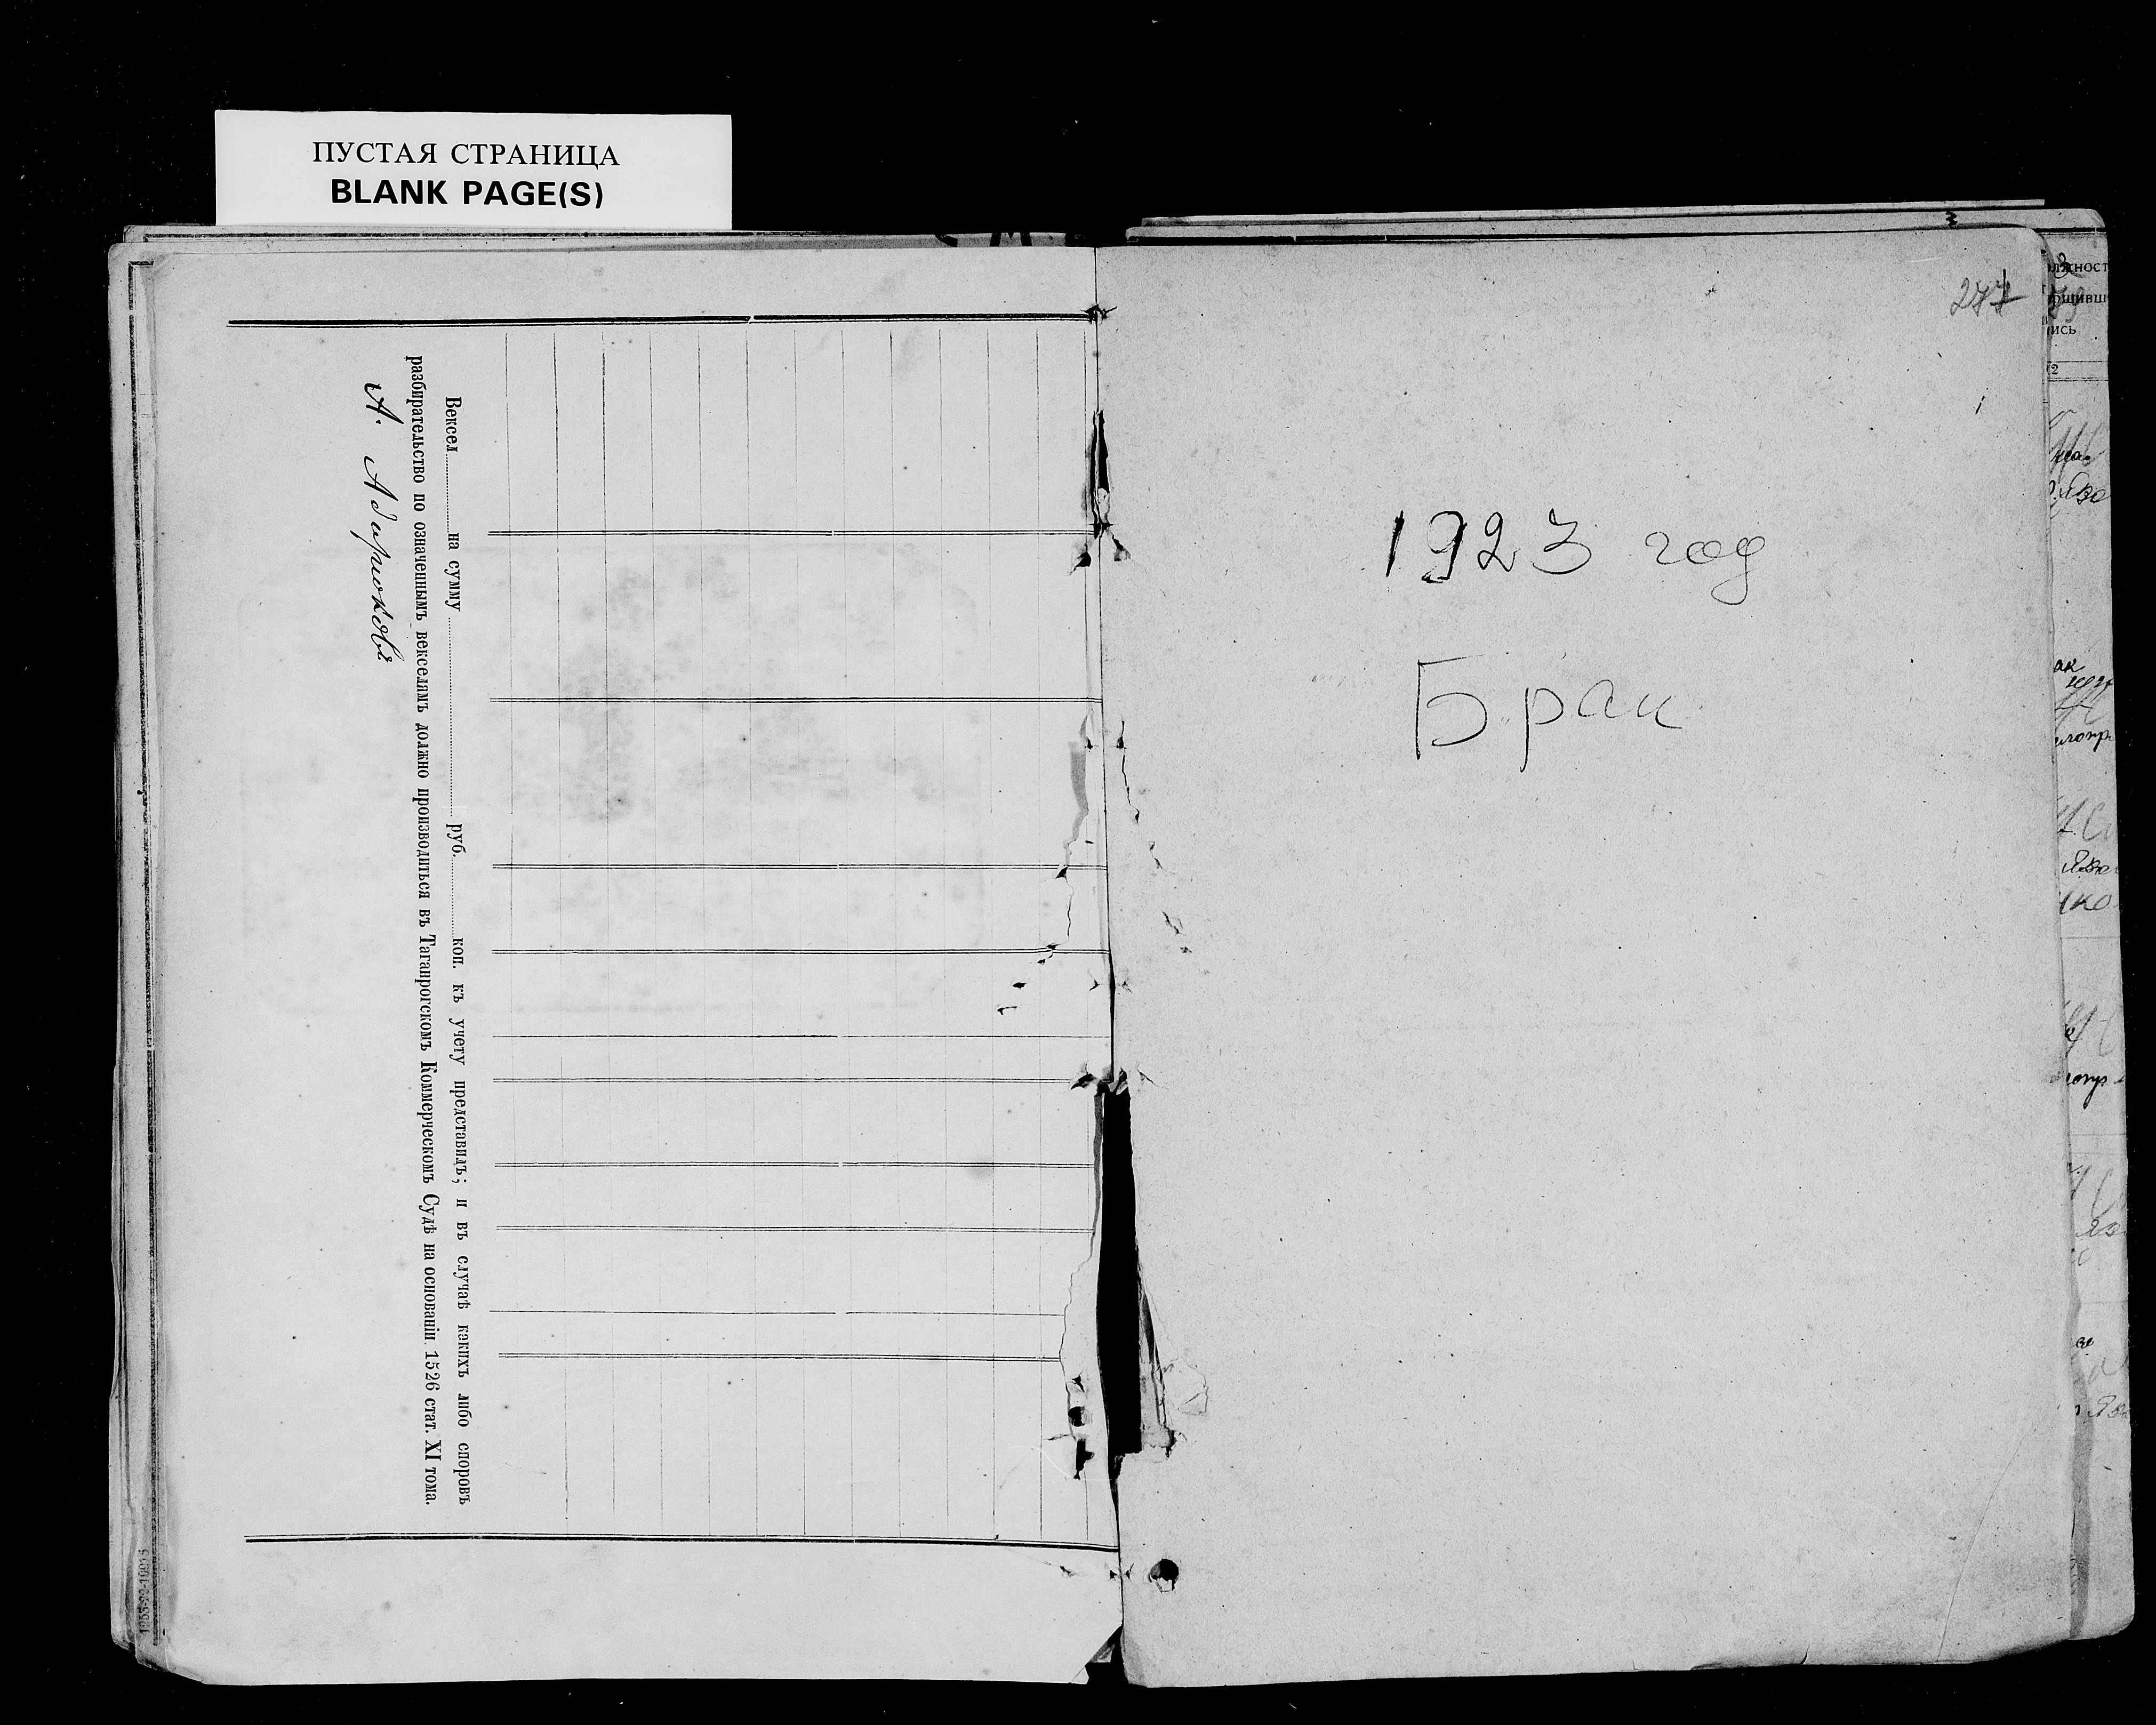 ПУСТАЯ СТРАНИЦА
BLANK PAGE(S)
Вексел на сумму руб. коп. къ учету представилъ; и въ случаѣ какихъ либо споровъ
разбирательство по означеннымъ векселямъ должно производиться въ Таганрогскомъ Коммерческомъ Судѣ на основаніи 1526 стат. XI тома.
А.
277
1923 год
Брак